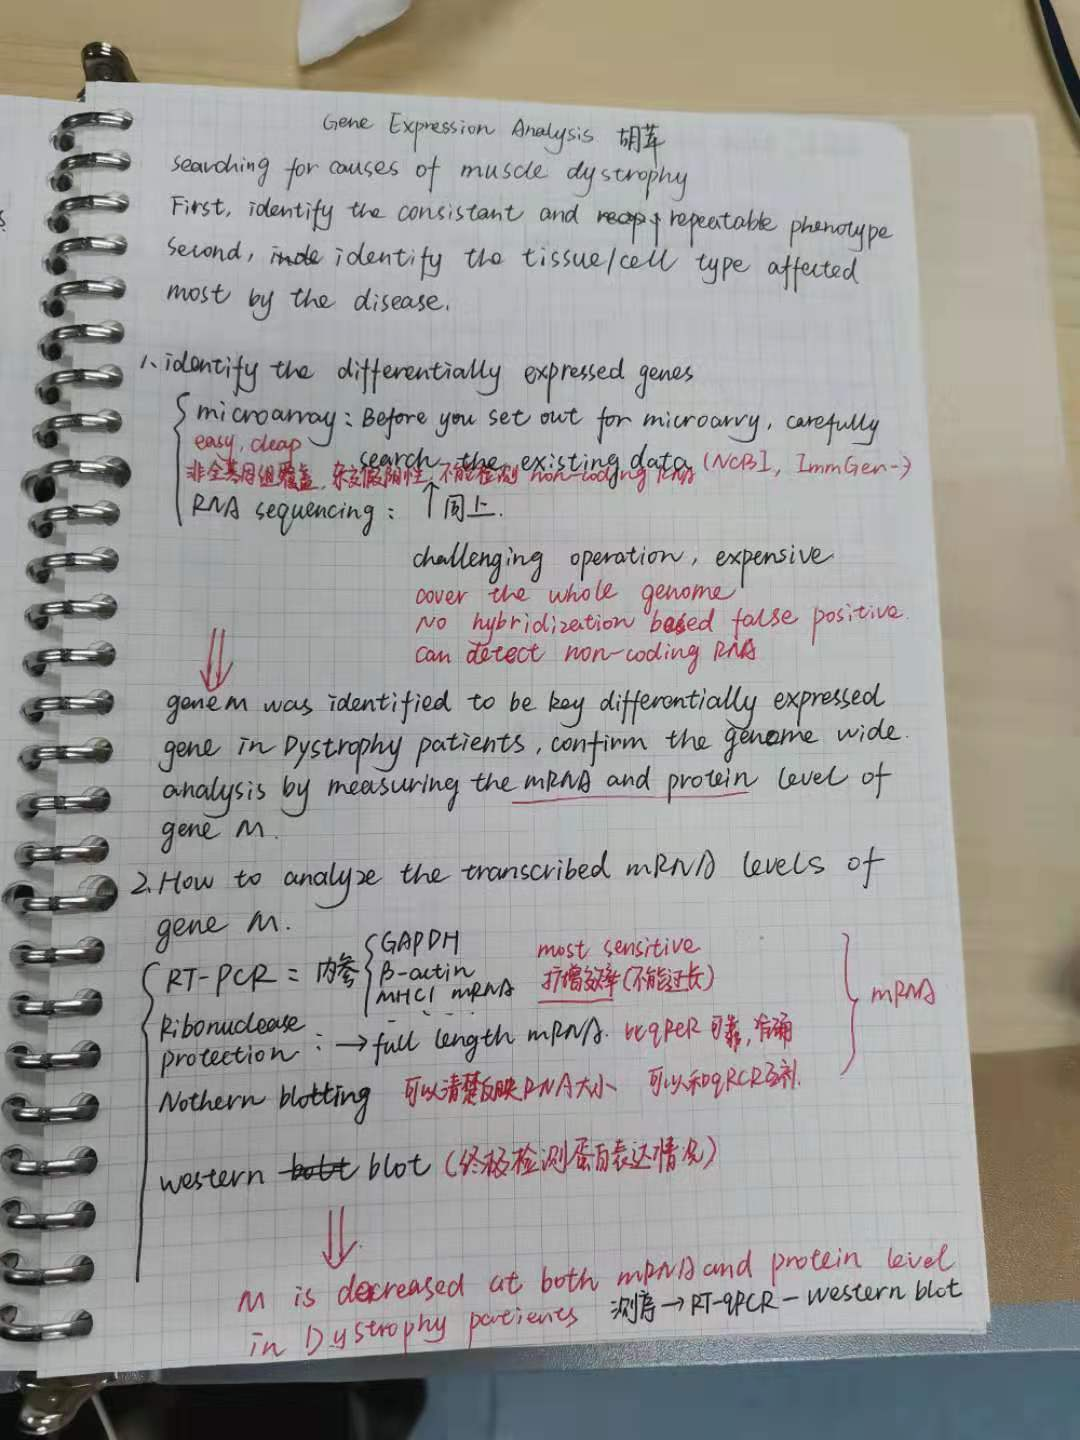 Gene Expression Analysis 胡苹
searching for causes of muscle dystrophy
First, identify the consistant and repeatable phenotype
second, identify the tissue/cell type affected
most by the disease.
1、identify the differentially expressed genes
microarray: Before you set out for microarry, carefully
easy, cleap
search the existing data (NCBI, ImmGen→)
非全基因组覆盖，杂交假阳性，不能检测 non-coding RNA
RNA sequencing: ↑同上.
challenging operation, expensive
cover the whole genome
No hybridization based false positive.
can detect non-coding RNA
⇓
gene M was identified to be key differentially expressed
gene in Dystrophy patients, confirm the genome wide.
analysis by measuring the mRNA and protein level of
gene M.
2. How to analyze the transcribed mRNA levels of
gene M.
RT-PCR = 内参 GAPDH most sensitive
β-actin 扩增效率(不能过长)
MHC1 mRNA
mRNA
Ribonuclease
protection: → full length mRNA. 比qPCR可靠,准确
Nothern blotting 可以清楚反映RNA大小 可以和qPCR互补.
western blot (终极检测蛋白表达情况)
⇓
M is decreased at both mRNA and protein level
in Dystrophy patients 测序→RT-qPCR-western blot